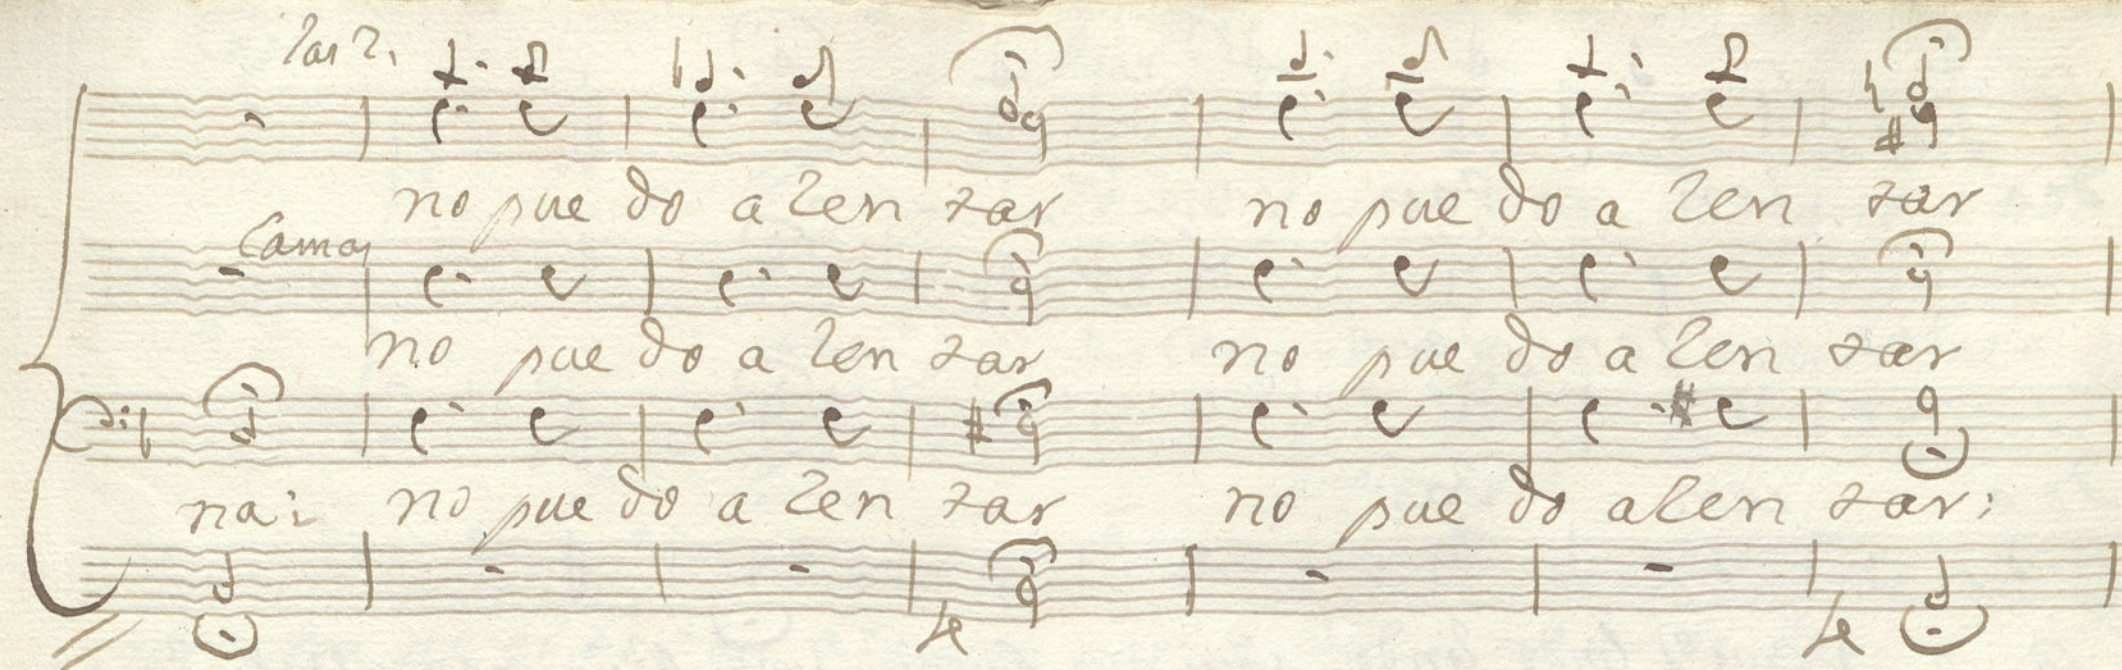 las 2.
no pue do a len tar no pue do a len tar
Cama
no pue do a len tar no pue do a len tar
na: no pue do a len tar no pue do a len tar: